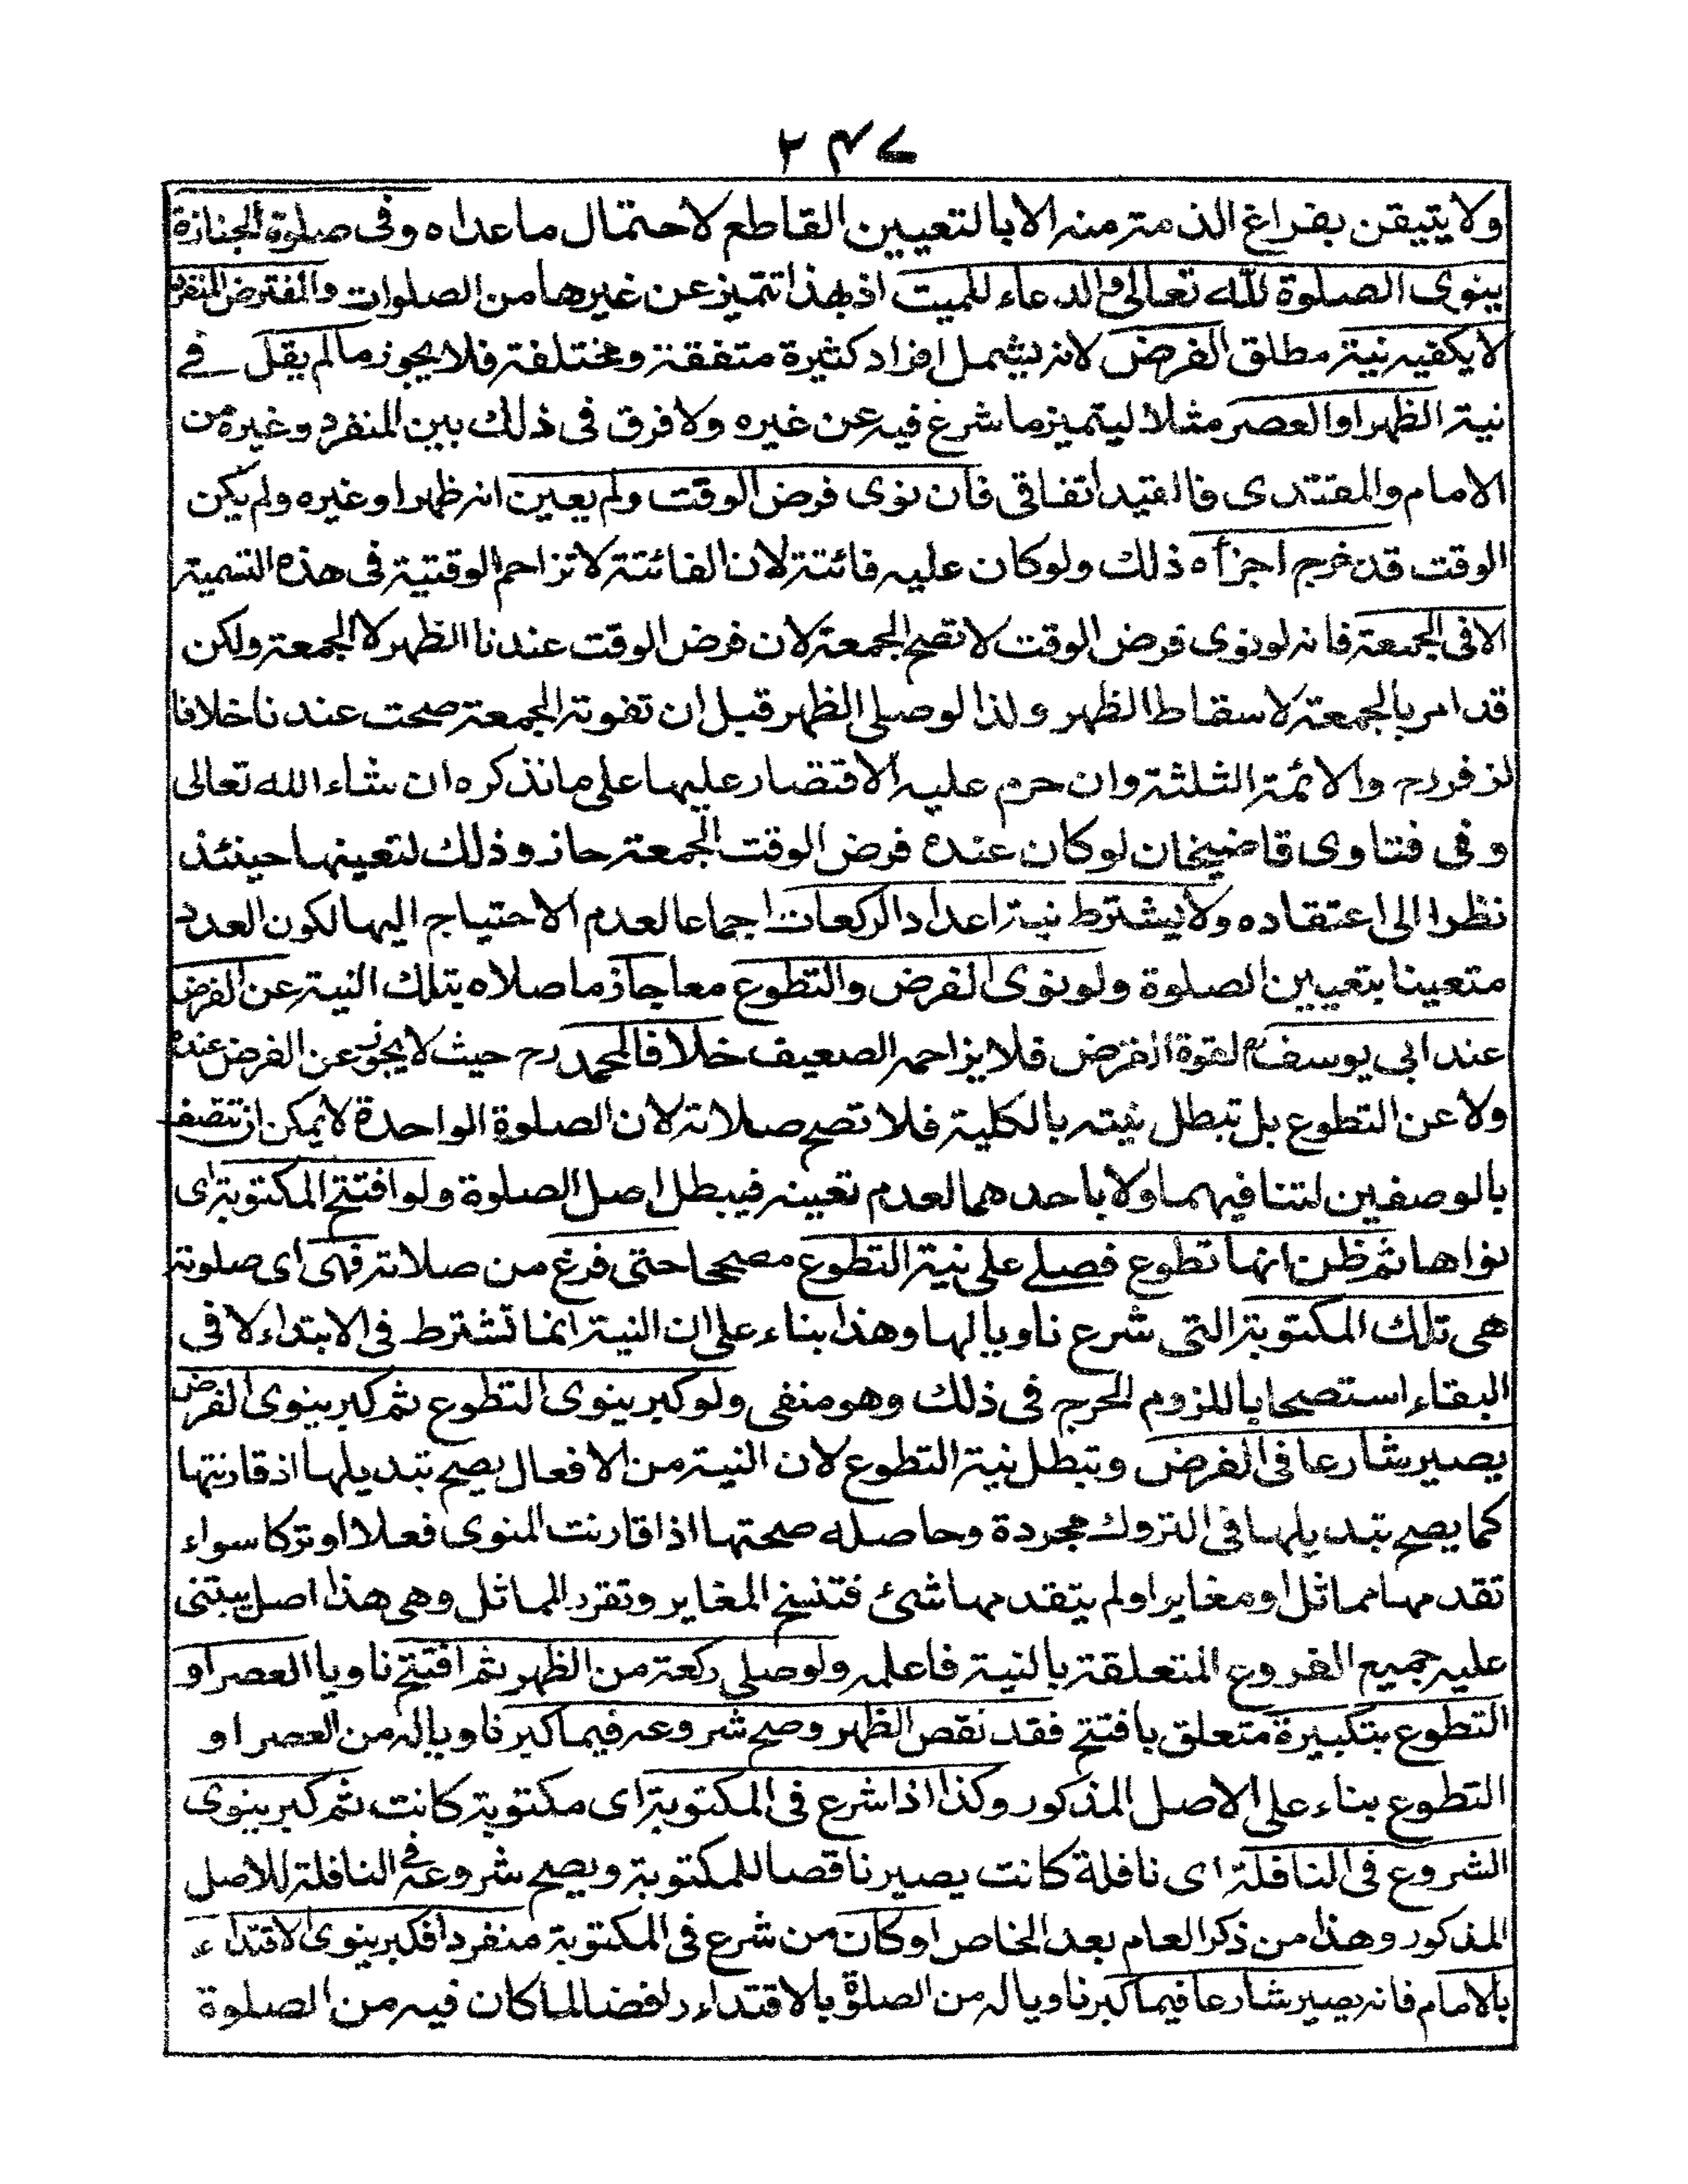 ۲۴۷
ولا يتيقن بفراغ الذمة منه الا بالتعيين القاطع لاحتمال ما عداه وفى صلوة الجنازة
ينوى الصلوة لله تعالى والدعاء للميت اذ بهذا تتميز عن غيرها من الصلوات والمفترض المنفرد
لا يكفيه نية مطلق الفرض لانه يشمل افراد كثيرة متفقة ومختلفة فلا يجوز ما لم يقل فى
نية الظهر او العصر مثلا ليتميز ما شرع فيه عن غيره ولا فرق فى ذلك بين المنفرد وغيره من
الامام والمقتدى فالقيد اتفاقى فان نوى فرض الوقت ولم يعين انه ظهر او غيره ولم يكن
الوقت قد خرج اجزأه ذلك ولو كان عليه فائتة لان الفائتة لا تزاحم الوقتية فى هذه التسمية
الا فى الجمعة فانه لو نوى فرض الوقت لا تصح الجمعة لان فرض الوقت عندنا الظهر لا الجمعة ولكن
قد امر بالجمعة لاسقاط الظهر ولذا لو صلى الظهر قبل ان تفوته الجمعة صحت عندنا خلافا
لزفر رح والائمة الثلثة وان حرم عليه الاقتصار عليها على ما نذكره ان شاء الله تعالى
وفى فتاوى قاضيخان لو كان عنده فرض الوقت الجمعة جاز وذلك لتعينها حينئذ
نظرا الى اعتقاده ولا يشترط نية اعداد الركعات اجماعا لعدم الاحتياج اليها لكون العدد
متعينا بتعيين الصلوة ولو نوى الفرض والتطوع معا جاز ما صلاه بتلك النية عن الفرض
عند ابى يوسف رح لقوة الفرض فلا يزاحمه الضعيف خلافا لمحمد رح حيث لا يجوز عن الفرض عنده
ولا عن التطوع بل تبطل نيته بالكلية فلا تصح صلاته لان الصلوة الواحدة لا يمكن ان تتصف
بالوصفين لتنافيهما ولا باحدهما لعدم تعينه فيبطل اصل الصلوة ولو افتتح المكتوبة اى
نواها ثم ظن انها تطوع فصلى على نية التطوع مصححا حتى فرغ من صلاته فهى اى صلوته
هى تلك المكتوبة التى شرع ناويا لها وهذا بناء على ان النية انما تشترط فى الابتداء لا فى
البقاء استصحابا للزوم الحرج فى ذلك وهو منفى ولو كبر ينوى التطوع ثم كبر ينوى الفرض
يصير شارعا فى الفرض وتبطل نية التطوع لان النية من الافعال يصح تبديلها اذ قارنتها
كما يصح تبديلها فى التروك مجردة وحاصله صحتها اذا قارنت المنوى فعلا او تركا سواء
تقدمها مماثل او مغاير او لم يتقدمها شئ فتنسخ المغاير وتقرر المماثل وهى هذا اصل يبتنى
عليه جميع الفروع المتعلقة بالنية فاعلمه ولو صلى ركعة من الظهر ثم افتتح ناويا العصر او
التطوع بتكبيرة متعلق بافتتح فقد نقض الظهر وصح شروعه فيما كبر ناويا له من العصر او
التطوع بناء على الاصل المذكور وكذا اذا شرع فى المكتوبة اى مكتوبة كانت ثم كبر ينوى
الشروع فى النافلة اى نافلة كانت يصير ناقصا للمكتوبة ويصح شروعه فى النافلة للاصل
المذكور وهذا من ذكر العام بعد الخاص او كان من شرع فى المكتوبة منفردا فكبر ينوى الاقتداء
بالامام فانه يصير شارعا فيما كبر ناويا له من الصلوة بالاقتداء رافضا لما كان فيه من الصلوة